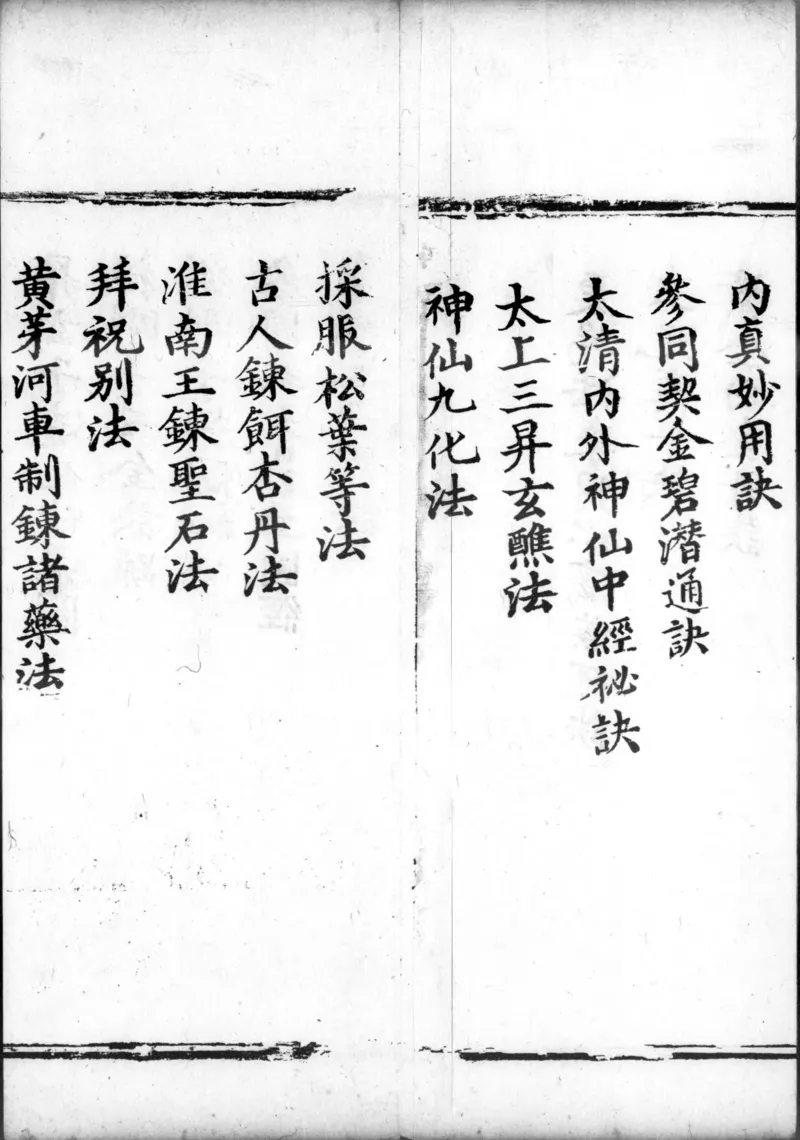 內真妙用訣
參同契金碧潛通訣
太清內外神仙中經祕訣
太上三昇玄醮法
神仙九化法
採服松葉等法
古人鍊餌杏丹法
淮南王鍊聖石法
拜祝别法
黃芽河車制鍊諸藥法